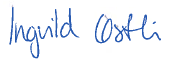 Ingvild Østli